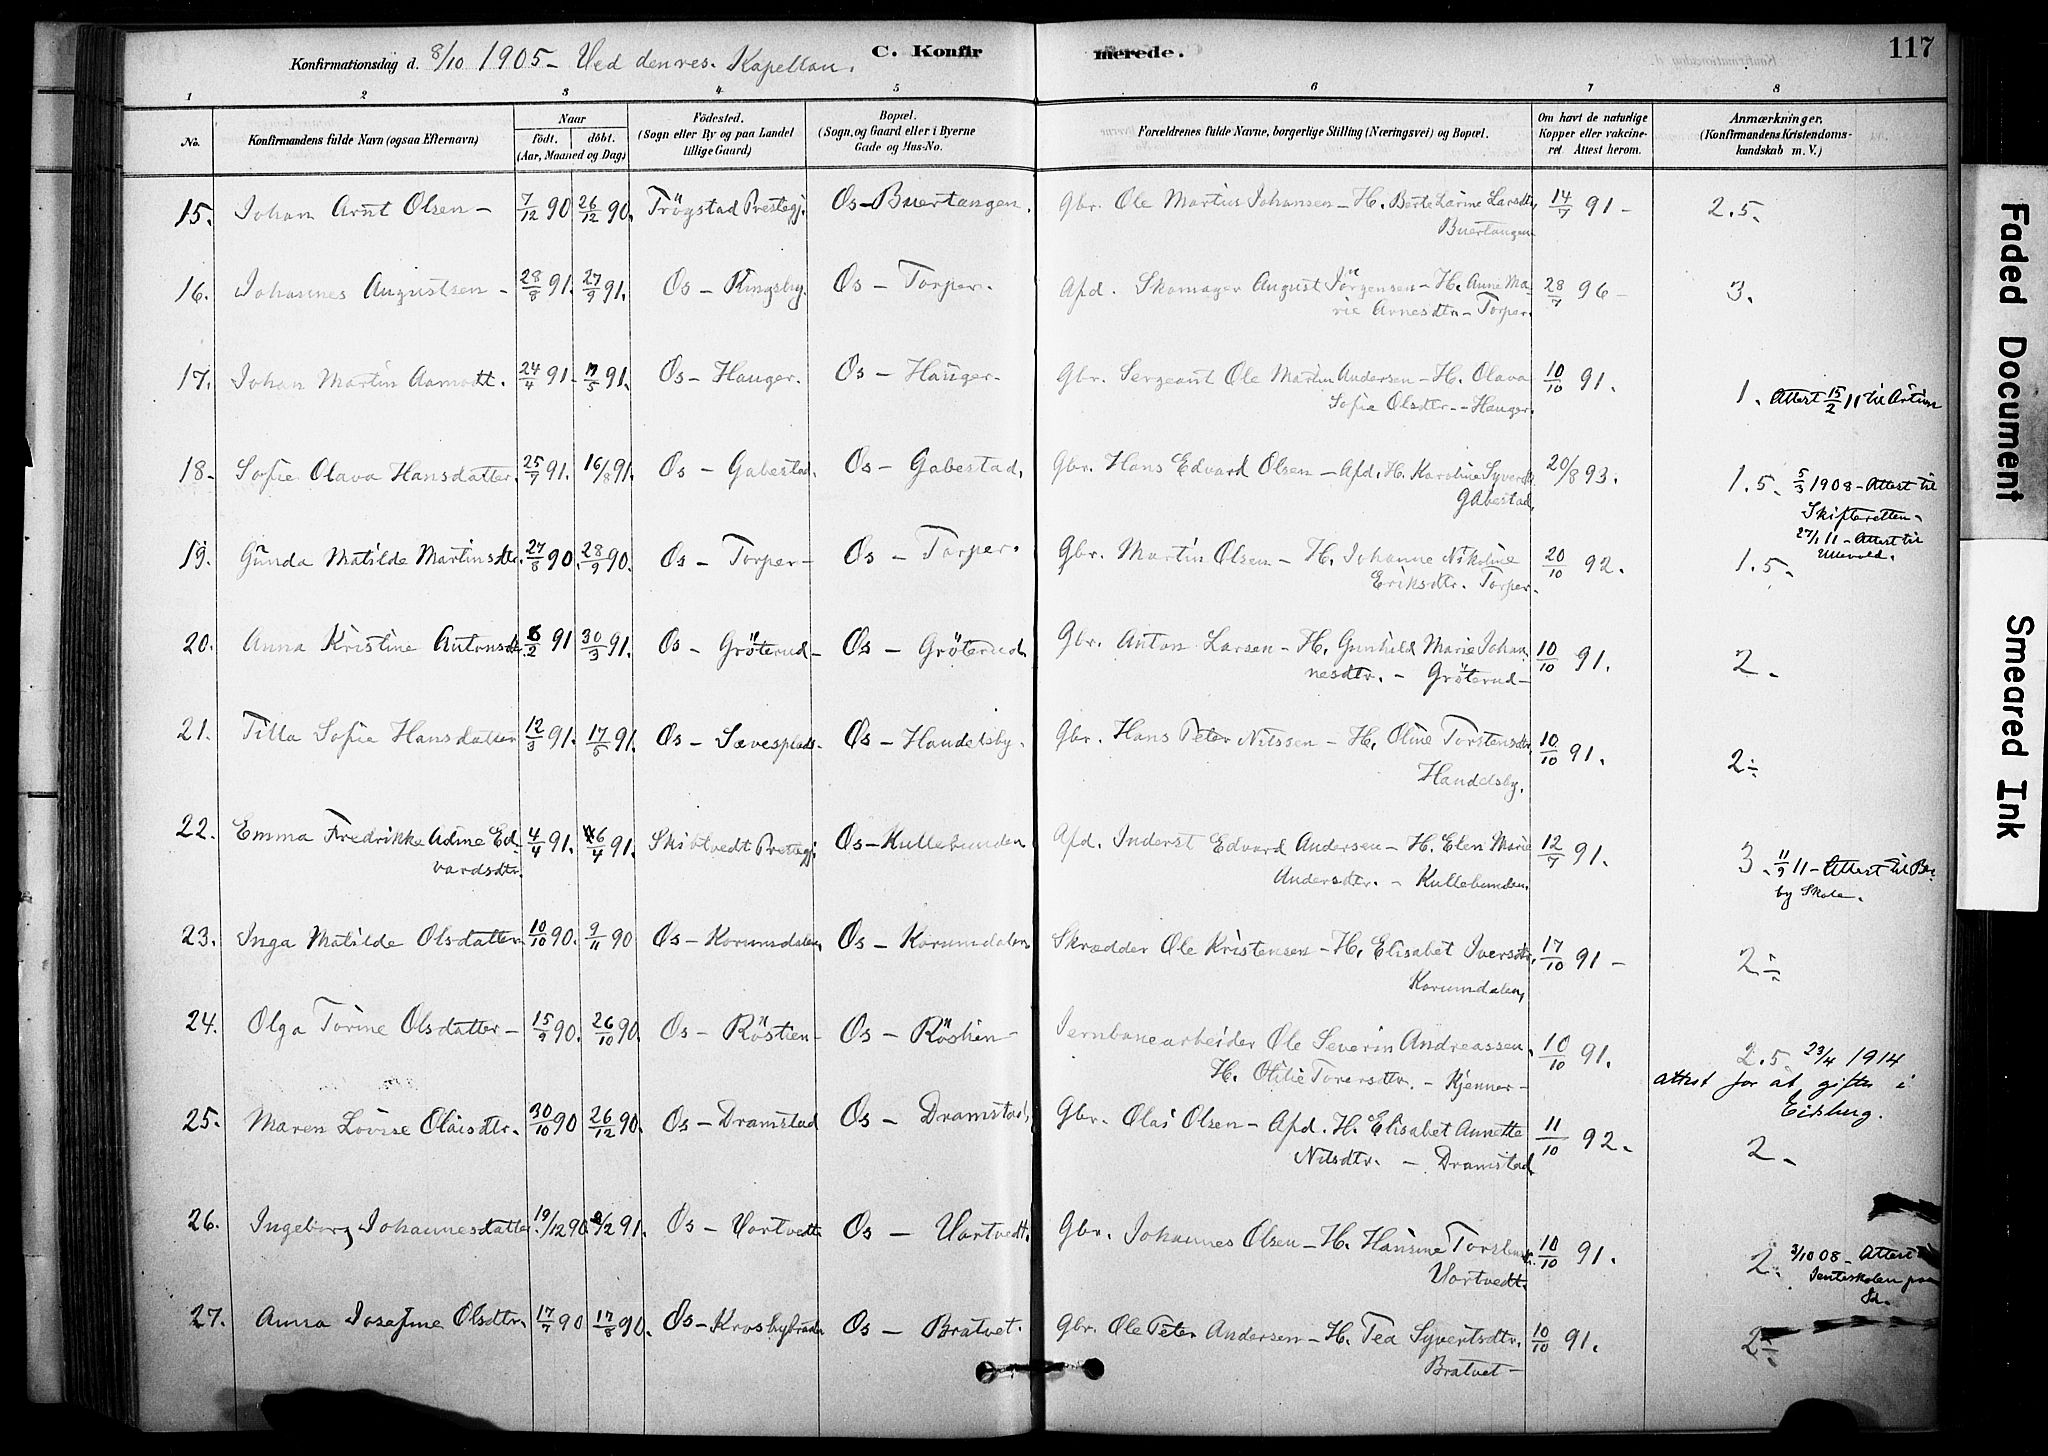 Konfirmationsdag d. 8/10 1905 - Ved den res. Kapellan.
C. Konfir merede.
117
1 2 3 4 5 6 7 8
No. Konfirmandens fulde Navn (ogsaa Efternavn) Naar født. døbt. (Aar, Maaned og Dag) Fødested. (Sogn eller By og paa Landet tillige Gaard) Bopæl. (Sogn og Gaard eller i Byerne Gade og Hus-No. Forældrenes fulde Navne, borgerlige Stilling (Næringsvei) og Bopæl. Om havt de naturlige Kopper eller vakcineret. Attest herom. Anmærkninger. (Konfirmandens Kristendomskundskab m. V.)
15. Johan Arnt Olsen - 7/12 90 26/12 90. Trögstad Prestegj. Os - Buertangen. Gbr. Ole Martin Johansen - H. Berte Larine Larsdtr, 14/7 91 - 2.5.
Buertangen
16. Johannes Augustsen - 28/8 91. 27/9 91. Os - Kingsby. Os - Torper. Afd. Skomager August Jörgensen - H. Anne Ma- 28/7 96 - 3.
rie Arnesdtr - Torper.
17. Johan Martin Aamodt. 24/4 91 - 7/5 91. Os - Hauger. Os - Hauger. Gbr. Sergeant Ole Martin Andersen - H. Olava 10/10 91. 1. Attest 15/2 11 til Artium
Sofie Olsdtr. - Hauger.
18. Sofie Olava Hansdatter. 25/7 91. 16/8 91. Os - Gabestad. Os - Gabestad. Gbr. Hans Edvard Olsen - Afd. H. Karoline Syversdtr 20/8 93. 1.5. 5/3 1908 - Attest til
Gabestad. Skifteretten -
27/1 11 - Attest til
Ullevold.
19. Gunda Matilde Martinsdtr. 27/8 90. 28/9 90. Os - Torper - Os - Torper. Gbr. Martin Olsen - H. Johanne Nikoline 20/10 92. 1.5.
Eriksdtr. Torper.
20. Anna Kristine Antonsdtr. 6/2 91 30/3 91. Os - Gröterud - Os - Gröterud Gbr. Anton Larsen - H. Gunhild Marie Johan 10/10 91. 2.
nesdtr. - Gröterud -
21. Tilla Sofie Hansdatter 12/3 91. 17/5 91. Os - Sævesplads. Os - Handelsby. Gbr. Hans Peter Nilssen - H. Oline Torstensdtr. 10/10 91. 2÷
Handelsby.
22. Emma Fredrikke Adine Ed- 4/4 91. 26/4 91. Skibtvedt Prestegj. Os - Kullebunden Afd. Inderst Edvard Andersen - H. Elen Marie 12/7 91. 3. 11/9 11 - Attest til
vardsdtr. Andersdtr. - Kullebunden. by Skole.
23. Inga Matilde Olsdatter 10/10 90. 9/11 90 Os - Korumdalen, Os - Korumdalen Skrædder Ole Kristensen - H. Elisabet Iversdtr, 17/10 91 - 2÷
Korumdalen,
24. Olga Torine Olsdatter - 15/9 90. 26/10 90. Os - Röstien - Os - Röstien - Jernbanearbeider Ole Severin Andreassen, 10/10 91. 2.5 23/4 1914
H. Otilie Torersdtr. - Kjenner - attest for at giftes i
Eidsberg.
25. Maren Lovise Olaisdtr. 30/10 90 26/12 90. Os - Dramstad Os - Dramstad, Gbr. Olai Olsen - Afd. H. Elisabet Annette 11/10 92. 2.
Nilsdtr. - Dramstad
26. Ingeborg Johannesdatter 19/12 90 2/2 91. Os - Vortvedt Os - Vortvedt. Gbr. Johannes Olsen - H. Hansine Torstensdtr. 10/10 91. 2. 3/10 08 - Attest
Vortvedt. Jenteskolen paa
27. Anna Josefine Olsdtr. 17/7 90 17/8 90. Os - Krosbybraaten Os - Bratvet. Gbr. Ole Peter Andersen - H. Tea Syvertsdtr. 10/10 91. 2÷
Bratvet -
Faded Document
Smeared Ink